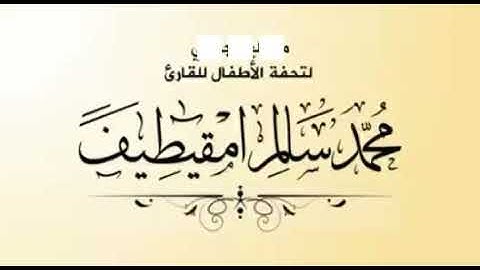 لتحفة الأطفال للقارئ
محمد سالم امقيطيف